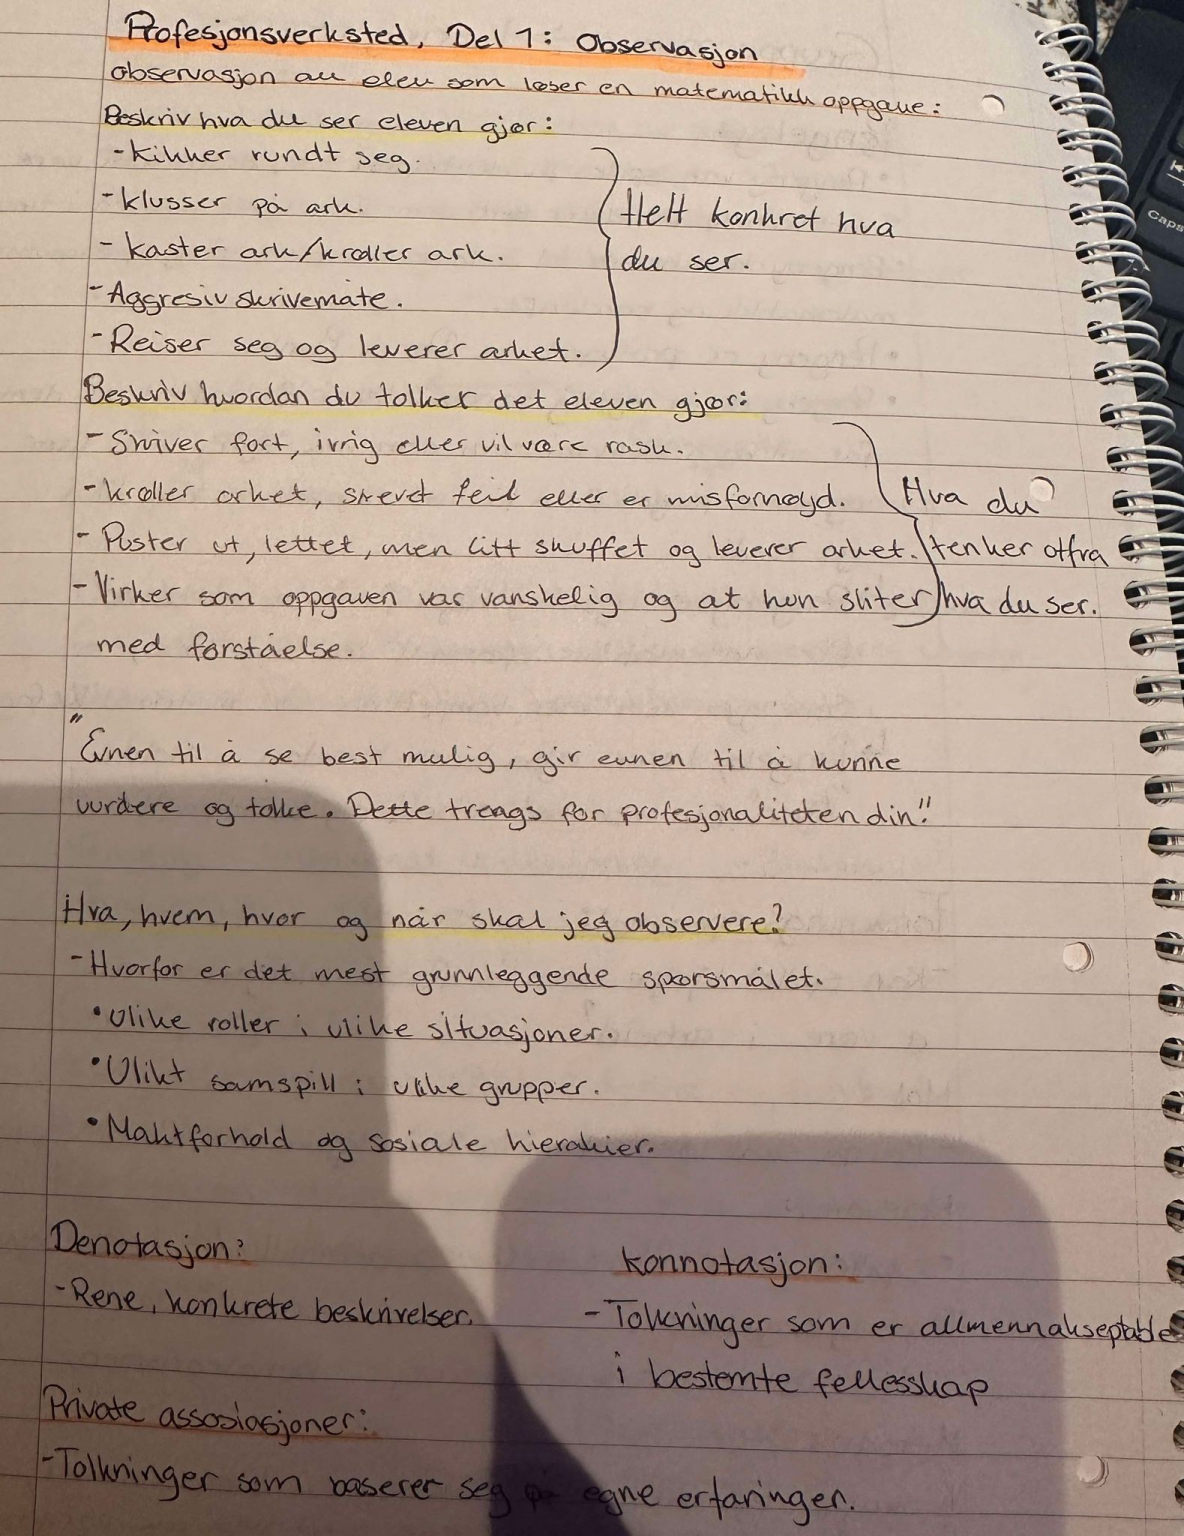 Profesjonsverksted, Del 1: Observasjon
observasjon av elev som løser en matematikk oppgave:
Beskriv hva du ser eleven gjør:
-Kikker rundt seg.
-klusser på ark.
- kaster ark/krøller ark.
-Aggresiv skrivemåte.
-Reiser seg og leverer arket.
Helt konkret hva
du ser.
Beskriv hvordan du tolker det eleven gjør:
-Skriver fort, ivrig eller vil være rask.
-krøller arket, skrevet feil eller er misfornøyd.
- Puster ut, lettet, men litt skuffet og leverer arket.
-Virker som oppgaven var vanskelig og at hun sliter
med forståelse.
Hva du
tenker utfra
hva du ser.
"Evnen til å se best mulig, gir evnen til å kunne
vurdere og tolke. Dette trengs for profesjonaliteten din!"
Hva, hvem, hvor og når skal jeg observere?
-Hvorfor er det mest grunnleggende spørsmålet.
•Ulike roller i ulike situasjoner.
•Ulikt samspill i ulike grupper.
•Maktforhold og sosiale hierakier.
Denotasjon:
-Rene, konkrete beskrivelser.
konnotasjon:
-Tolkninger som er allmennakseptable
i bestemte fellesskap
Private assosiasjoner:
-Tolkninger som baserer seg på egne erfaringer.
Caps